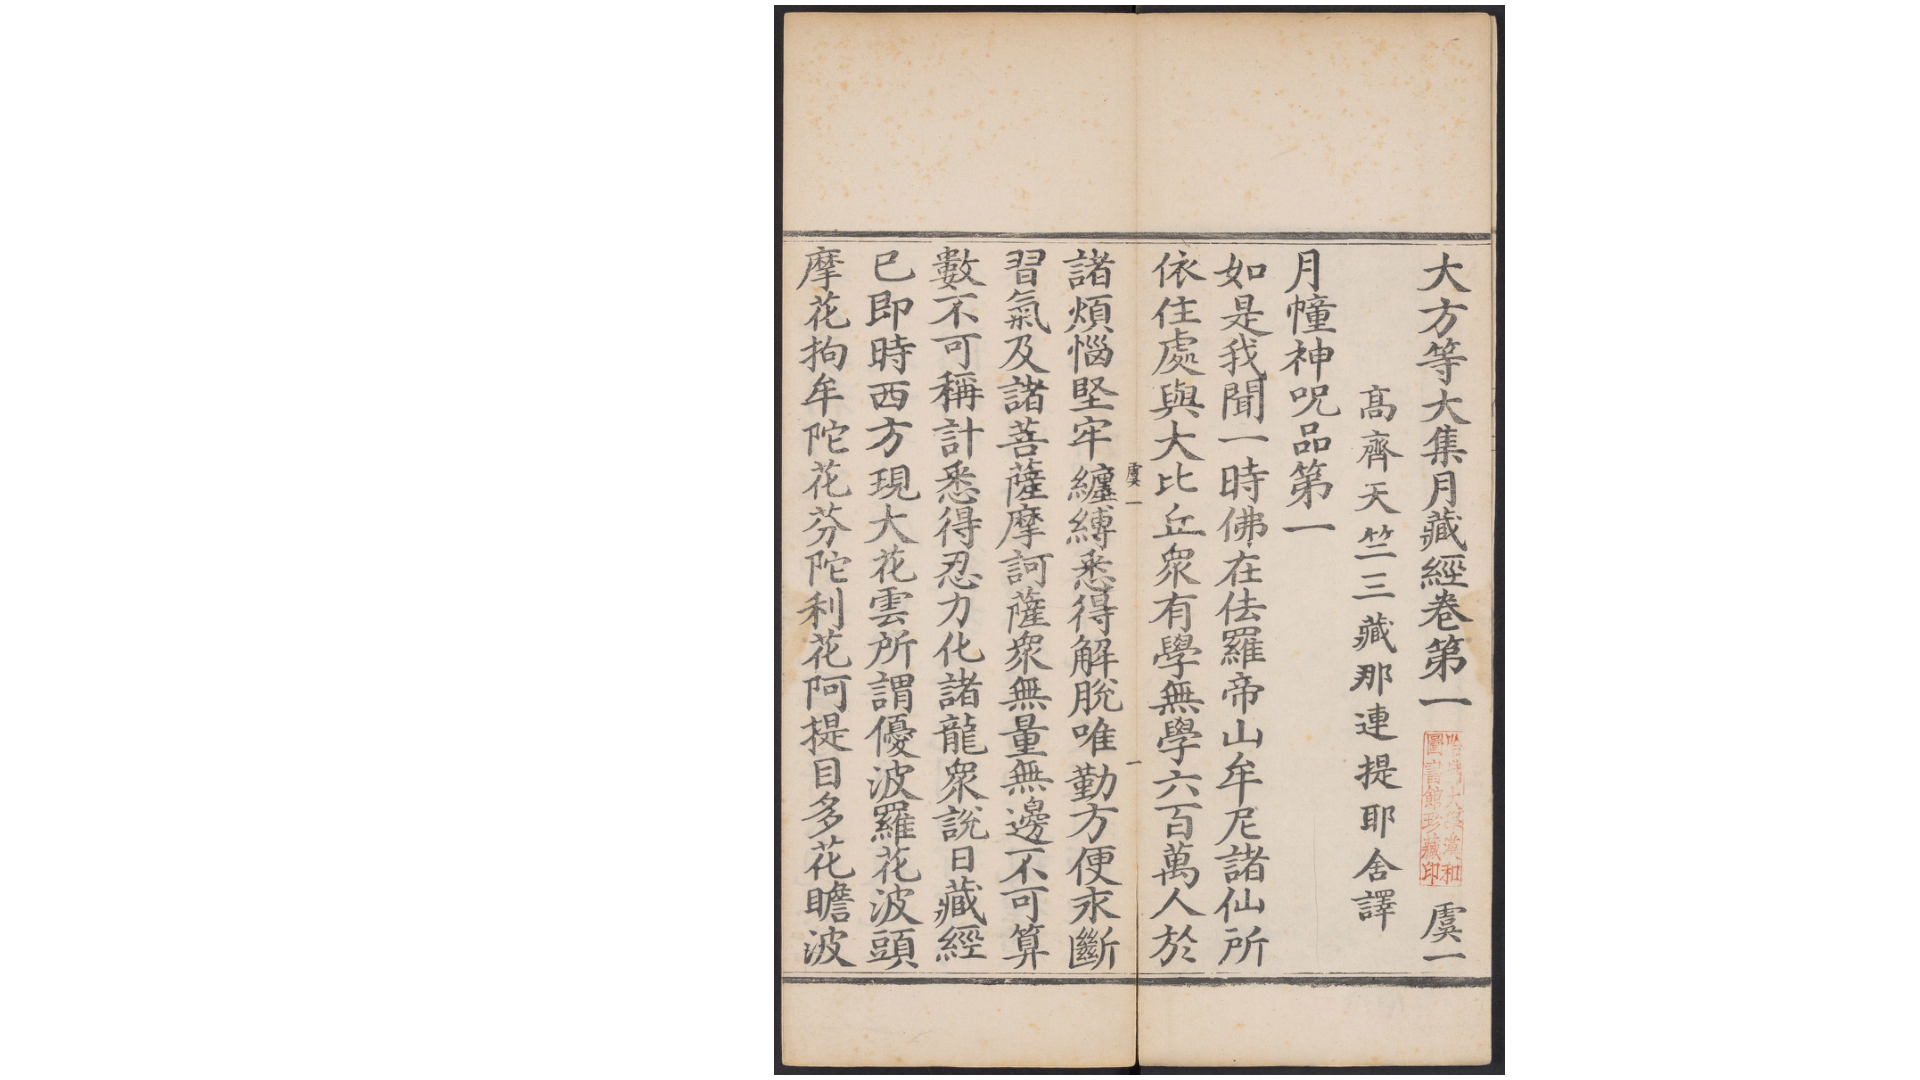 大方等大集月藏經卷第一 虞一
髙齊天竺三藏那連提耶舍譯
月幢神呪品第一
如是我聞一時佛在佉羅帝山牟尼諸仙所
依住處與大比丘衆有學無學六百萬人於
虞一 一
諸煩惱堅牢纏縛悉得解脫唯勤方便求斷
習氣及諸菩薩摩訶薩衆無量無邊不可算
數不可稱計悉得忍力化諸龍衆說日藏經
已即時西方現大花雲所謂優波羅花波頭
摩花拘牟陀花芬陀利花阿提目多花瞻波
哈佛大學漢和
圖書館珍藏印